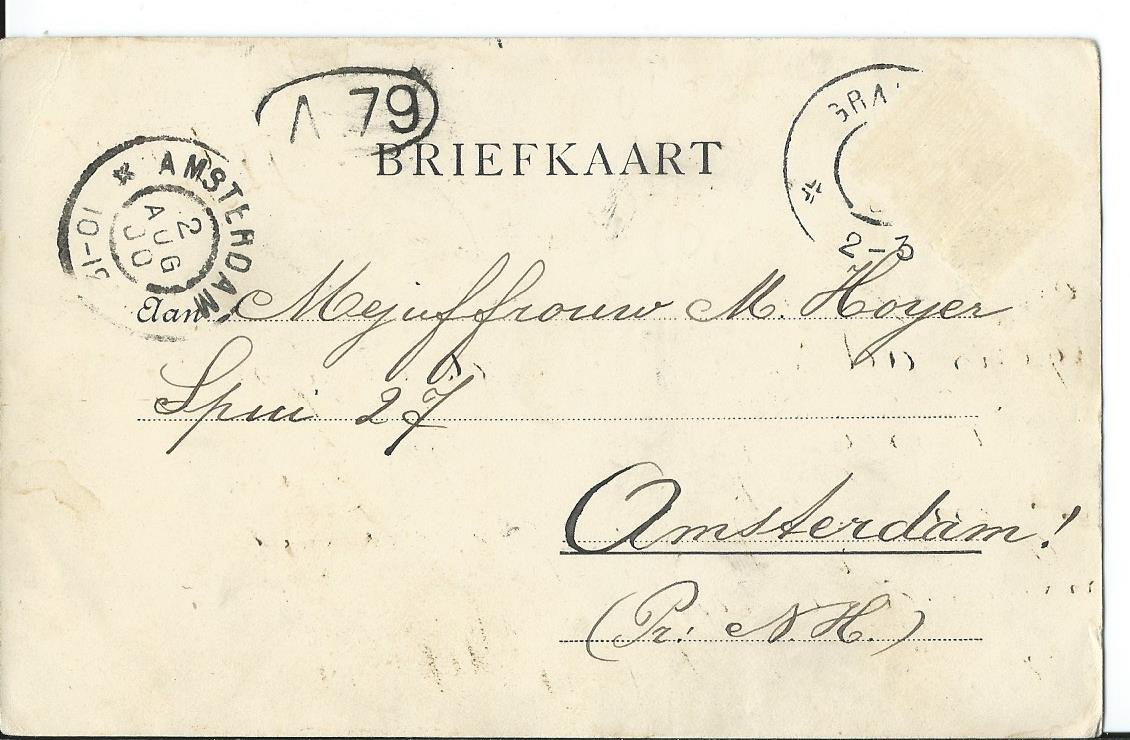 A 79
BRIEFKAART
* AMSTERDAM
2
AUG
10-
GRA
*
2-3
Aan Mejuffrouw M. Hoyer
Spui 27
Amsterdam!
(Pr. N. H.)